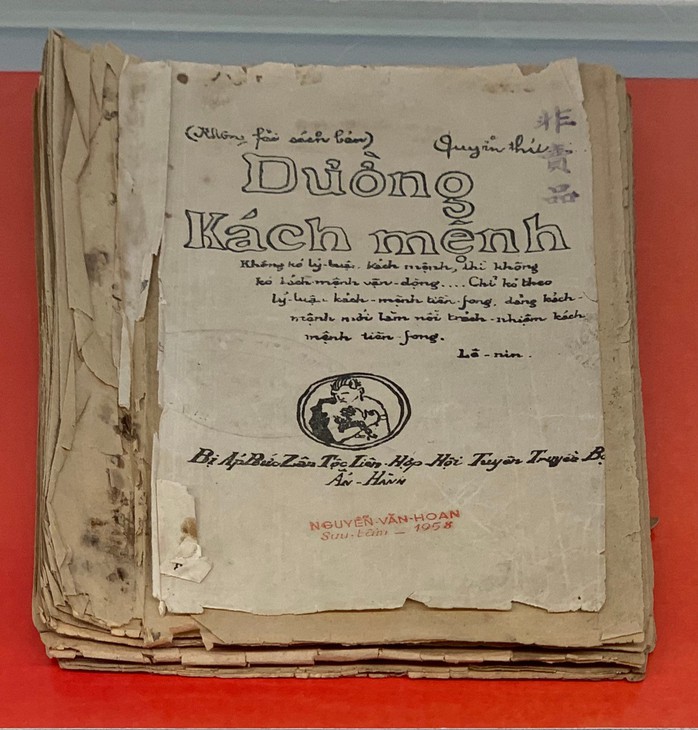 (Không fải sách bán)
Quyển thứ
非
賣
品
Đường
Kách mệnh
Không kó lý-luận kách mệnh, thì không
kó kách mệnh vận-động.... Chỉ kó theo
lý-luận kách-mệnh tiền-fong, đảng kách-
mệnh mới làm nổi trách-nhiệm kách
mệnh tiền-fong.
Lê-nin.
Bị Áp Bức Zân Tộc Liên-Hợp-Hội Tuyên Truyền Bộ
Ấn-Hành
NGUYỄN-VĂN-HOAN
Sưu-tầm — 1958